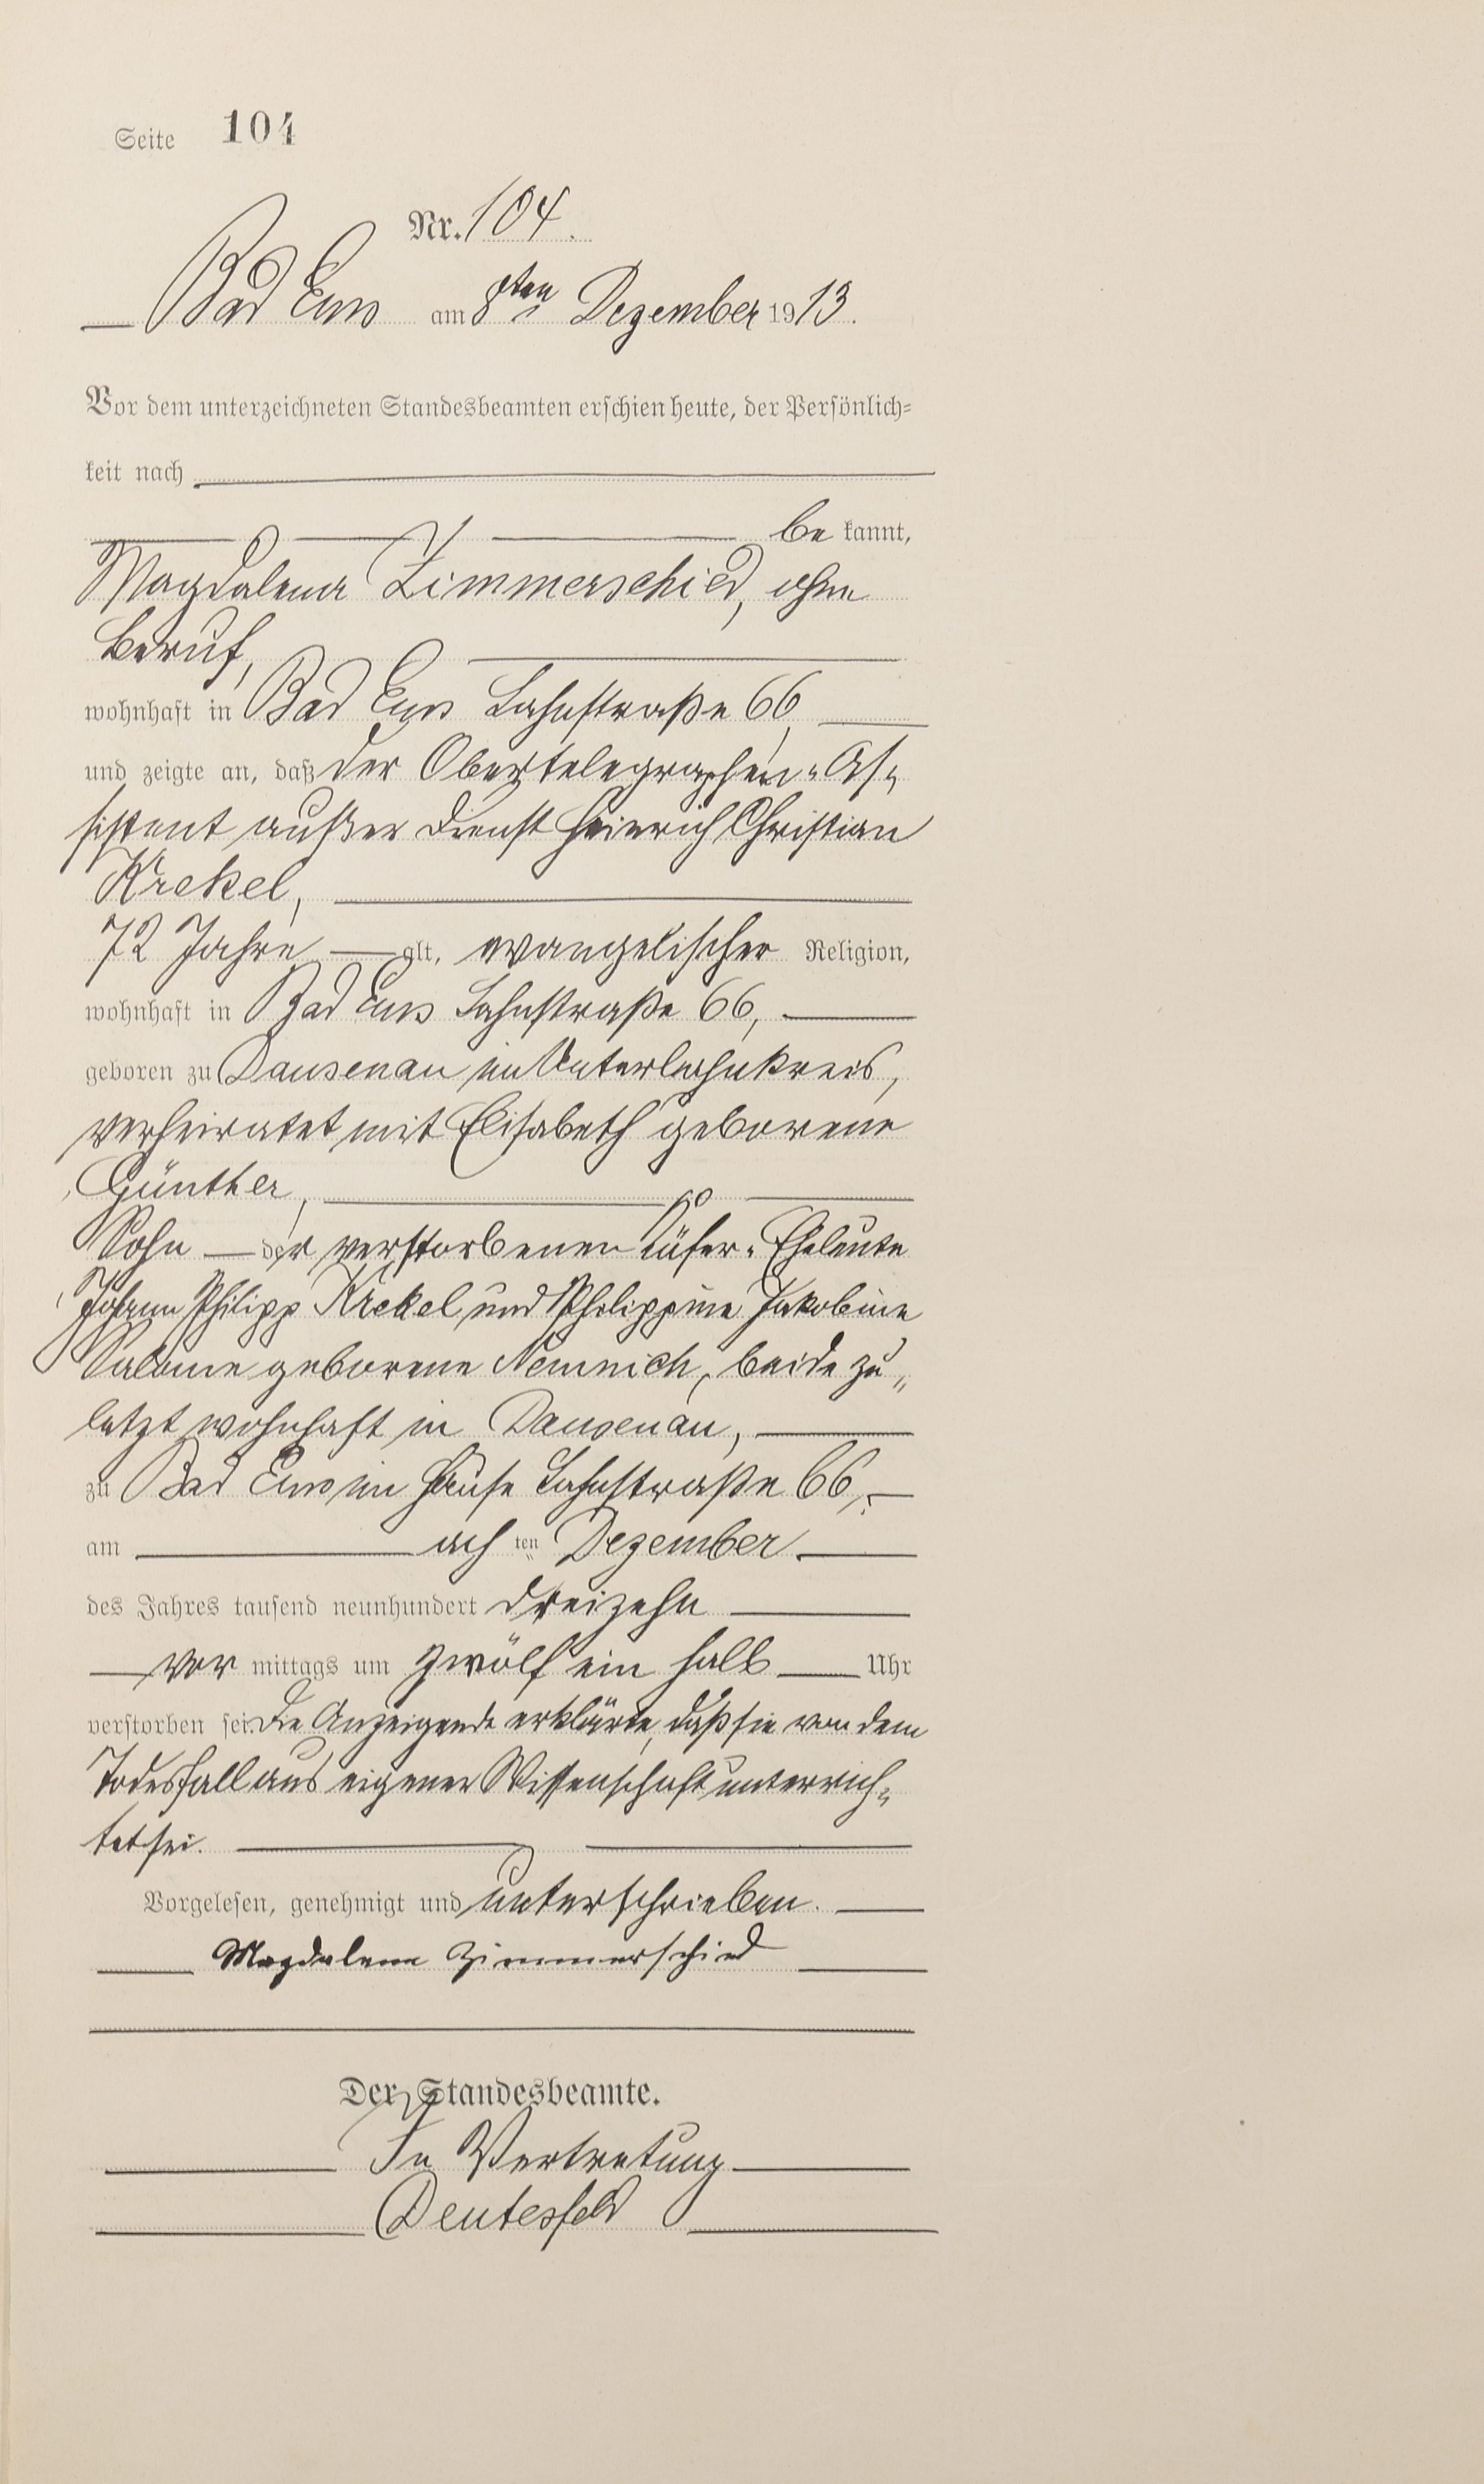 Seite 104
Nr. 104.
Bad Ems am 8ten Dezember 1913.
Vor dem unterzeichneten Standesbeamten erschien heute, der Persönlich=
keit nach
be kannt,
Magdalena Zimmerschied, ohne
Beruf,
wohnhaft in Bad Ems Lahnstraße 66,
und zeigte an, daß der Obertelegraphen-As-
sistent außer Dienst Heinrich Christian
Krekel,
72 Jahre alt, evangelischer Religion,
wohnhaft in Bad Ems Lahnstraße 66,
geboren zu Dausenau im Unterlahnkreis,
verheiratet mit Elisabeth geborene
Günther,
Sohn der verstorbenen Küfer-Eheleute
Johann Philipp Krekel und Philippine Jakobine
Salome geborene Nemnich, beide zu„
letzt wohnhaft in Dausenau,
zu Bad Ems im Hause Lahnstraße 66,
am ach ten Dezember
des Jahres tausend neunhundert dreizehn
vor mittags um zwölf ein halb Uhr
verstorben sei. Die Anzeigende erklärte, daß sie von dem
Todesfall aus eigener Wissenschaft unterrich-
tet sei.
Vorgelesen, genehmigt und unterschrieben.
Magdalena Zimmerschied
Der Standesbeamte.
In Vertretung
Deutesfeld